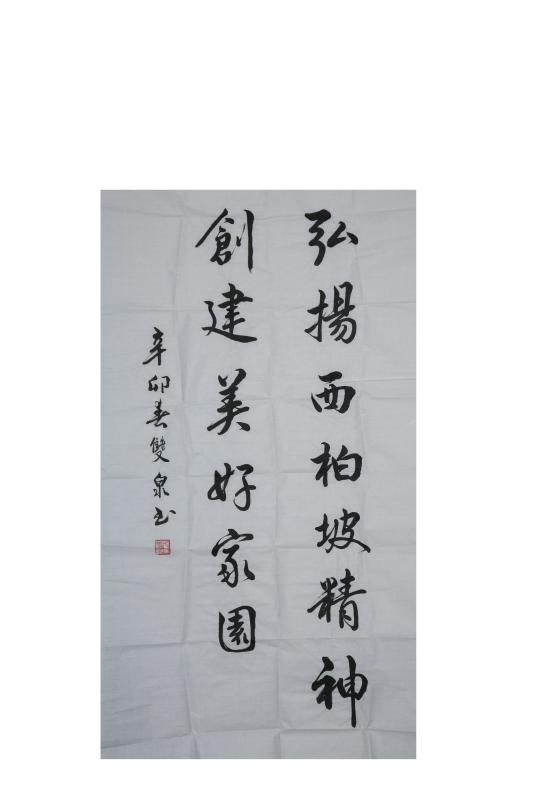 弘揚西柏坡精神
創建美好家園
辛卯春雙泉书